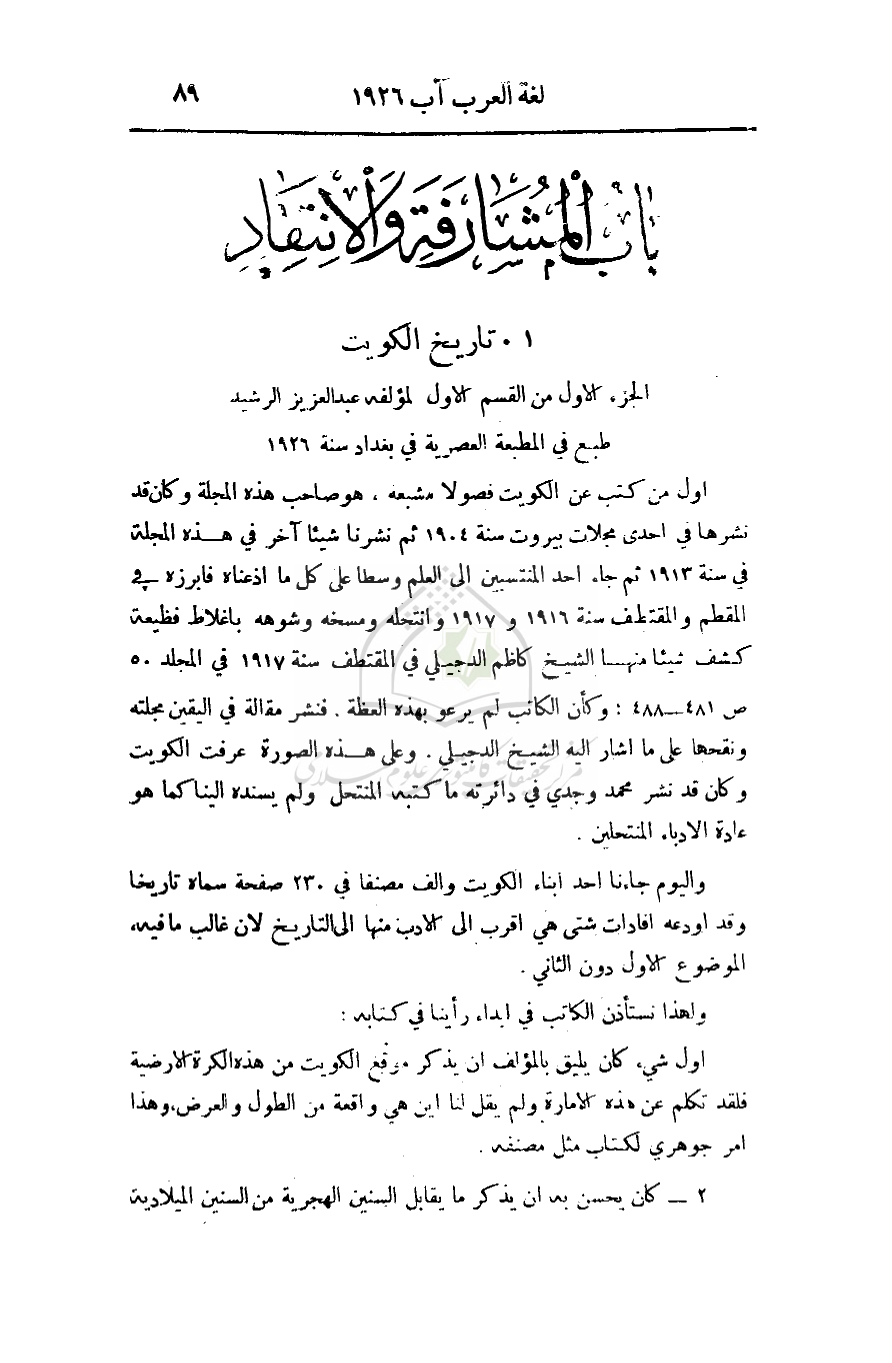 لغة العرب آب ١٩٢٦ ٨٩
باب المُشَارَفَةِ وَالْإِنتِقَادِ
١ . تاريخ الكويت
الجزء الاول من القسم الاول لمؤلفه عبدالعزيز الرشيد
طبع في المطبعة العصرية في بغداد سنة ١٩٢٦
اول من كتب عن الكويت فصولا مشبعه ، هو صاحب هذه المجلة وكان قد
نشرها في احدى مجلات بيروت سنة ١٩٠٤ ثم نشرنا شيئا آخر في هـــذه المجلة
في سنة ١٩١٣ ثم جاء احد المنتسبين الى العلم وسطا على كل ما اذعناه فابرزه في
المقطم والمقتطف سنة ١٩١٦ و ١٩١٧ وانتحله ومسخه وشوهه باغلاط فظيعة
كشف شيئا منهـــا الشيخ كاظم الدجيلي في المقتطف سنة ١٩١٧ في المجلد ٥٠
ص ٤٨١—٤٨٨ : وكأن الكاتب لم يرعو بهذه العظة . فنشر مقالة في اليقين مجلته
ونقحها على ما اشار اليه الشيخ الدجيلي . وعلى هـــذه الصورة عرفت الكويت
وكان قد نشر محمد وجدي في دائرته ما كتبه المنتحل ولم يسنده الينا كما هو
عادة الادباء المنتحلين .
واليوم جاءنا احد ابناء الكويت والف مصنفا في ٢٣٠ صفحة سماه تاريخا
وقد اودعه افادات شتى هي اقرب الى الادب منها الى التاريخ لان غالب ما فيه،
الموضوع الاول دون الثاني .
ولهذا نستأذن الكاتب في ابداء رأينا في كتابه :
اول شيء كان يليق بالمؤلف ان يذكر موقع الكويت من هذه الكرة الارضية
فلقد تكلم عن هذه الامارة ولم يقل لنا اين هي واقعة من الطول والعرض،وهذا
امر جوهري لكتاب مثل مصنفه .
٢ — كان يحسن به ان يذكر ما يقابل السنين الهجرية من السنين الميلادية